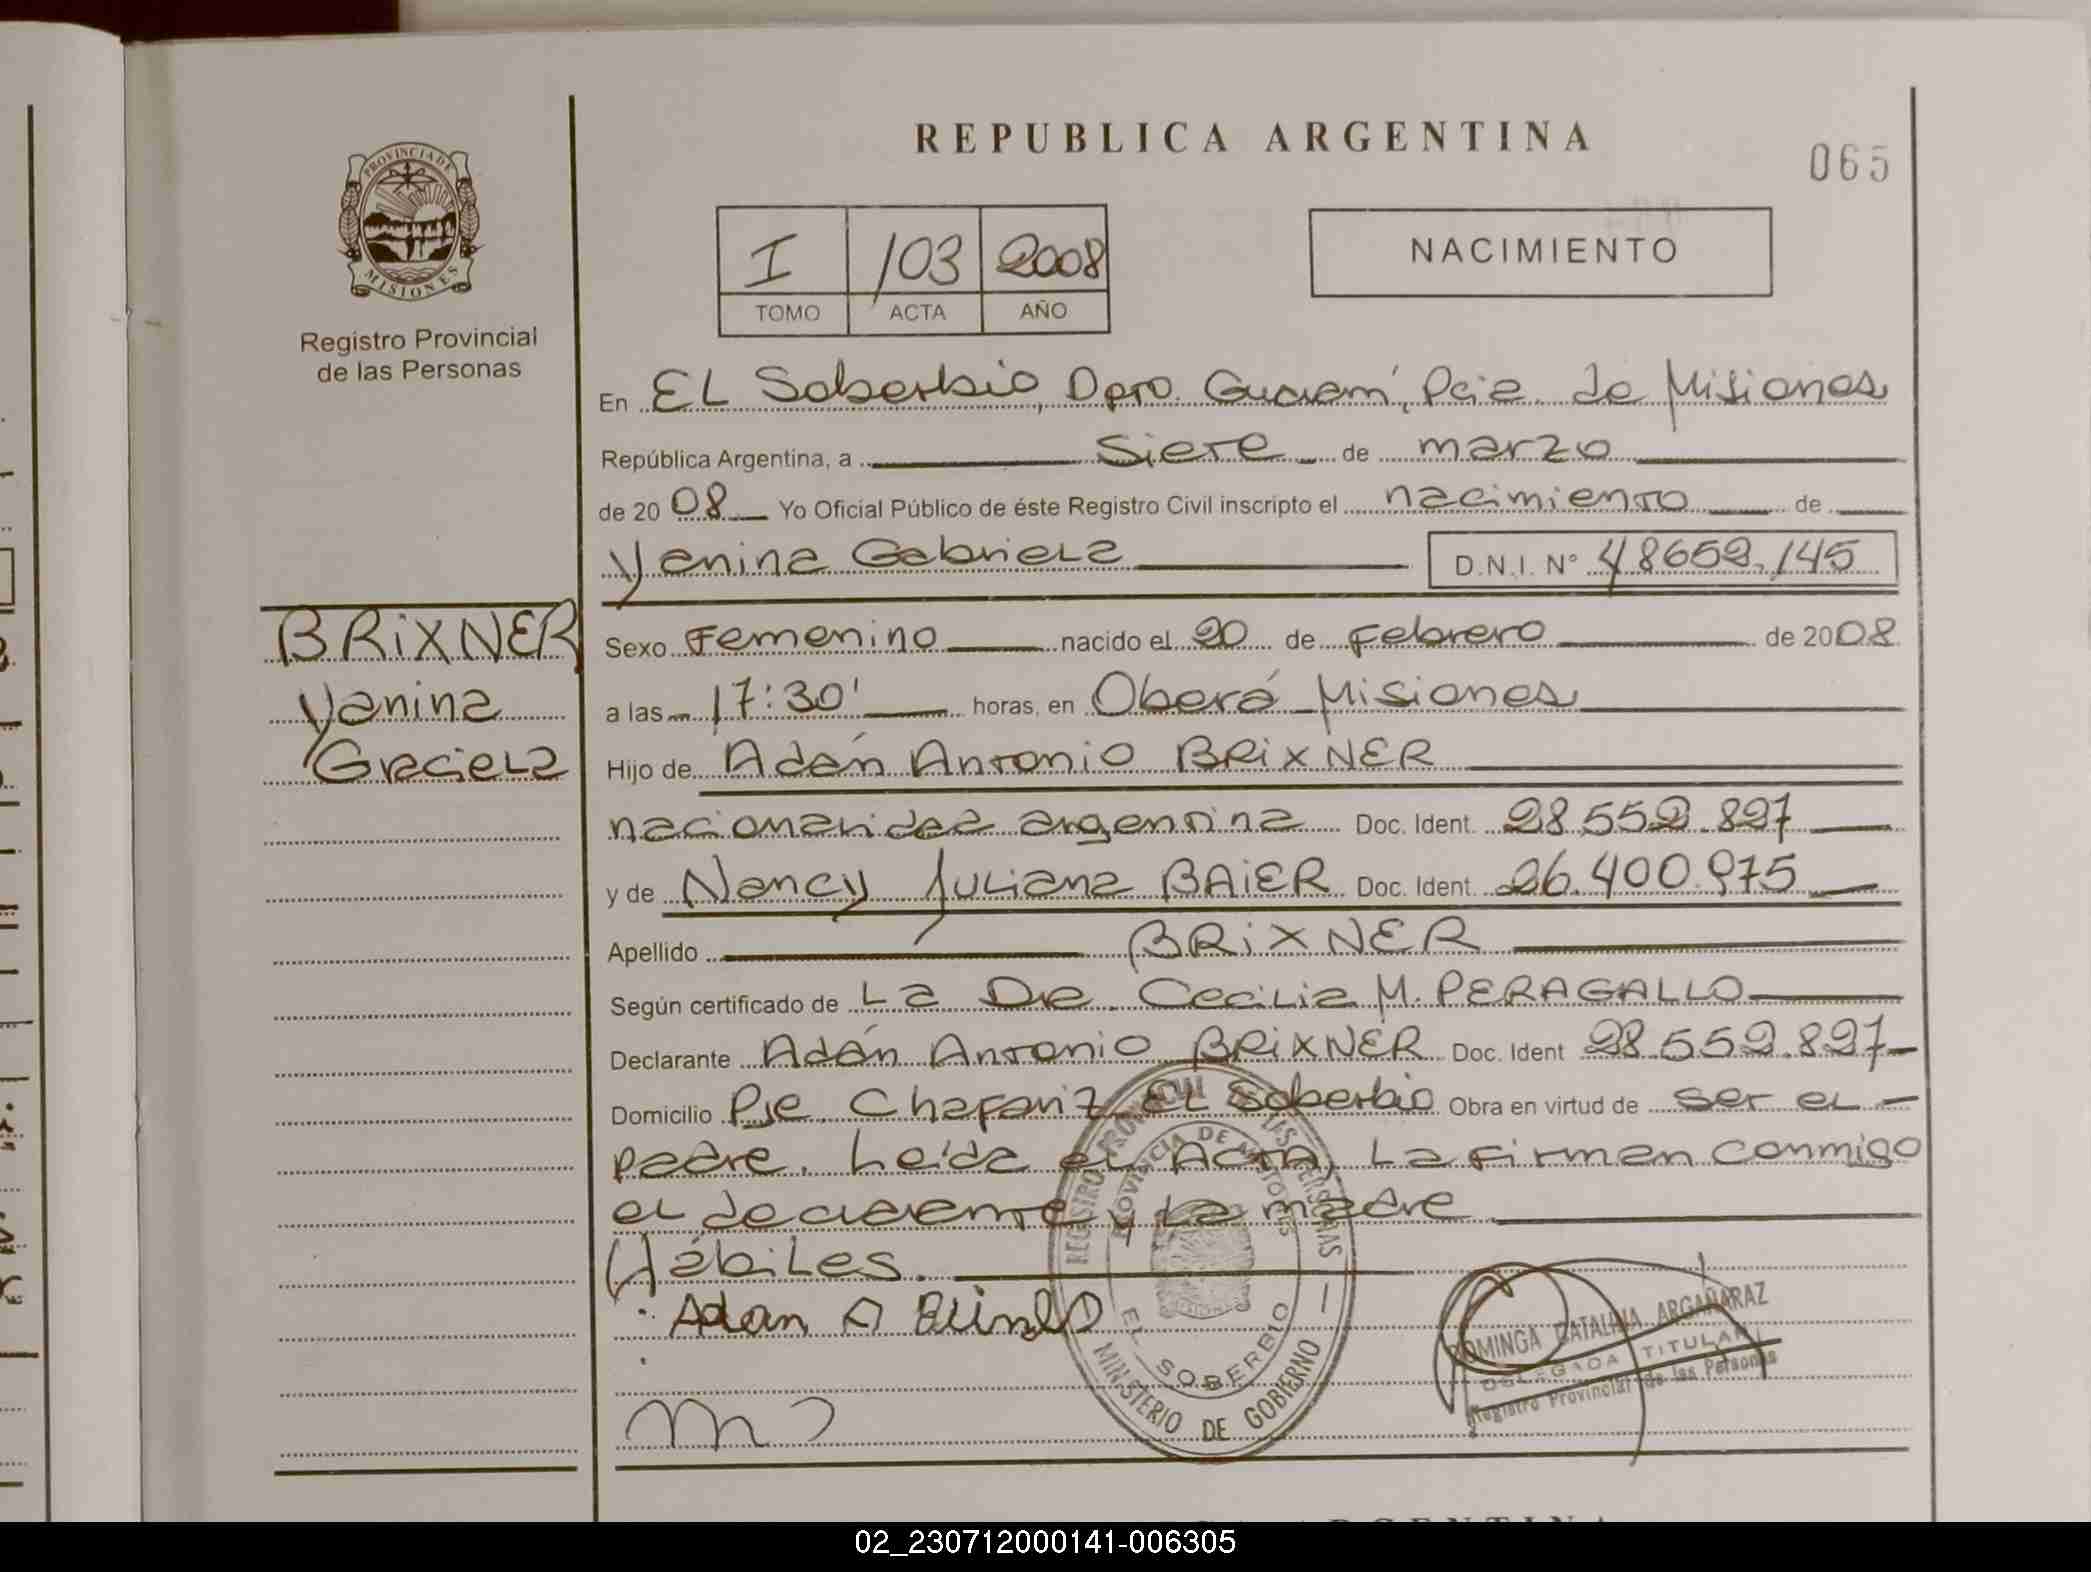 REPUBLICA ARGENTINA
065
PROVINCIA DE MISIONES
Registro Provincial
de las Personas
I /03 2008
TOMO ACTA AÑO
NACIMIENTO
En EL Soberbio, Dpto. Guaraní, Pcia. de Misiones
República Argentina, a siete de marzo
de 2008 Yo Oficial Público de éste Registro Civil inscripto el nacimiento de
Yanina Gabriela D.N.I. Nº 48652.145
BRiXNER
Yanina
Graciela
Sexo Femenino nacido el 20 de Febrero de 2008
a las 17:30' horas, en Oberá Misiones
Hijo de Adán Antonio BRiXNER
nacionalidad argentina Doc. Ident. 28.552.827
y de Nancy Juliana BAiER Doc. Ident. 26.400.975
Apellido BRiXNER
Según certificado de La Dra. Cecilia M. PERAGALLO
Declarante Adán Antonio BRiXNER Doc. Ident 28.552.827
Domicilio Pje. Chafariz EL Soberbio Obra en virtud de ser el
padre. Leída el Acta, La Firman conmigo
el declarante y La madre
Hábiles.
Adan A
REGISTRO PROVINCIAL DE LAS PERSONAS
PROVINCIA DE MISIONES
EL SOBERBIO
MINISTERIO DE GOBIERNO
DOMINGA CATALINA ARGAÑARAZ
DELEGADA TITULAR
Registro Provincial de las Personas
02_230712000141-006305